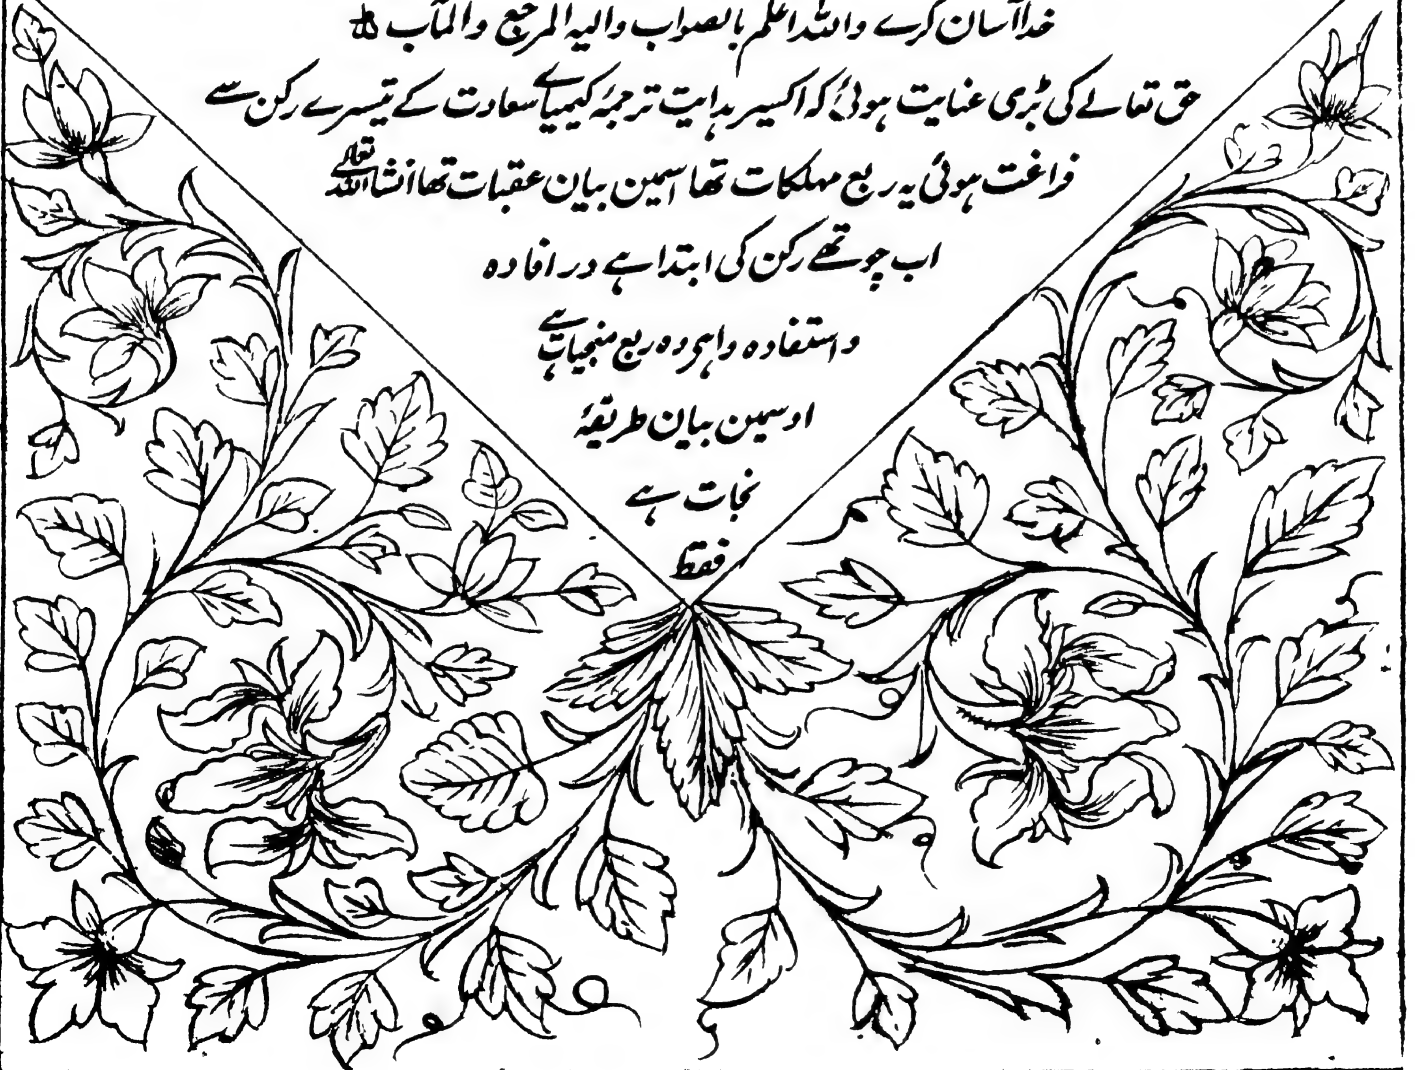 خدا آسان کرے واللہ اعلم بالصواب والیہ المرجع والمآب
حق تعالے کی بڑی عنایت ہوئی کہ اکسیر ہدایت ترجمۂ کیمیاے سعادت کے تیسرے رکن سے
فراغت ہوئی یہ ربع مہلکات تھا اسمین بیان عقبات تھا انشاء اللہ تعالی
اب چوتھے رکن کی ابتدا ہے در افادہ
و استفادہ وا ہی وہ ربع منجیات ہے
اوسمین بیان طریقۂ
نجات ہے
فقط